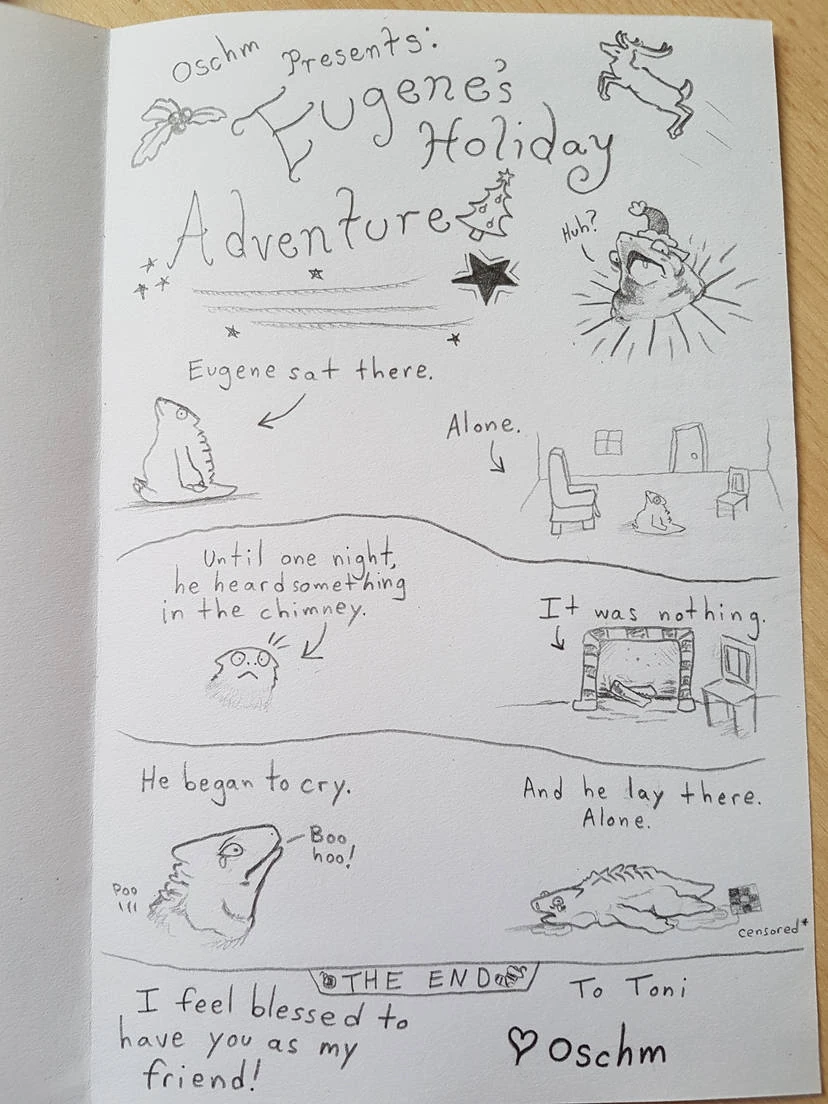 Oschm Presents:
Eugene's
Holiday
Adventure
Huh?
Eugene sat there.
Alone.
Until one night,
he heard something
in the chimney.
It was nothing.
He began to cry.
Boo
hoo!
Poo
And he lay there.
Alone.
censored*
THE END
I feel blessed to
have you as my
friend!
To Toni
♡ Oschm